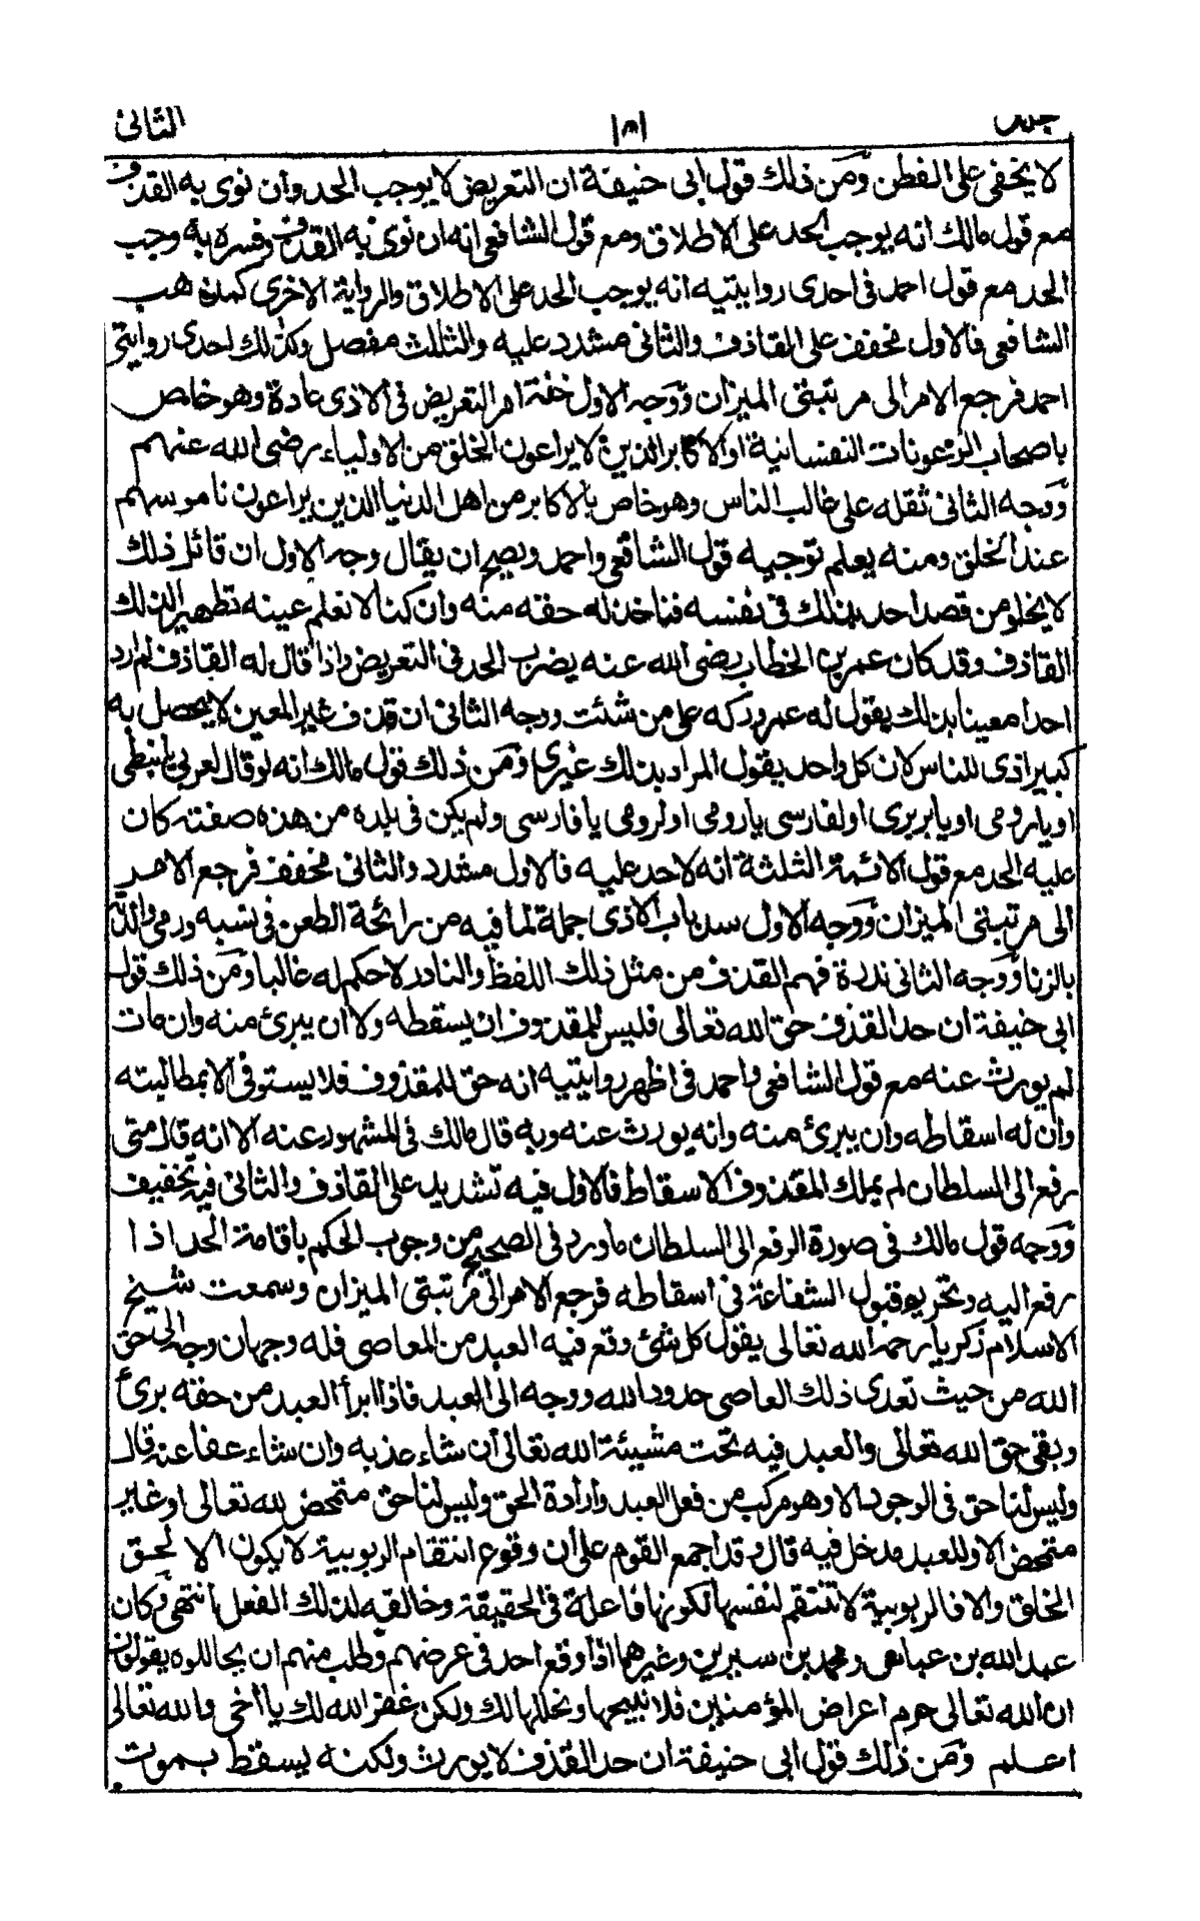 جلد ١٥١ الثانى
لا يخفى على الفطن ومن ذلك قول ابى حنيفة ان التعريض لا يوجب الحد وان نوى به القذف
مع قول مالك انه يوجب الحد على الاطلاق ومع قول الشافعى انه ان نوى به القذف وفسره به وجب
الحد مع قول احمد فى احدى روايتيه انه يوجب الحد على الاطلاق والرواية الاخرى كمذهب
الشافعى فالاول مخفف على القاذف والثانى مشدد عليه والثالث مفصل وكذلك احدى روايتى
احمد فرجع الامر الى مرتبتى الميزان ووجه الاول خفة امر التعريض فى الاذى عادة وهو خاص
باصحاب الرعونات النفسانية او الاكابر الذين لا يراعون الخلق من الاولياء رضى الله عنهم
ووجه الثانى ثقله على غالب الناس وهو خاص بالاكابر من اهل الدنيا الذين يراعون ناموسهم
عند الخلق ومنه يعلم توجيه قول الشافعى واحمد ويصح ان يقال وجه الاول ان قائل ذلك
لا يخلو من قصد احد بذلك فى نفسه فناخذ له حقه منه وان كنا لا نعلم عينه تطهيرا لذلك
القاذف وقد كان عمر بن الخطاب رضى الله عنه يضرب الحد فى التعريض واذا قال له القاذف لم ارد
احدا معينا بذلك يقول له عمر وزكه على من شئت ووجه الثانى ان قذف غير المعين لا يحصل به
كبير اذى للناس لان كل واحد يقول المراد بذلك غيرى ومن ذلك قول مالك انه لو قال لعربى يا نبطى
او يا رومى او يا بربرى او لفارسى يا رومى او لرومى يا فارسى ولم يكن فى بلده من هذه صفته كان
عليه الحد مع قول الائمة الثلثة انه لا حد عليه فالاول مشدد والثانى مخفف فرجع الامر
الى مرتبتى الميزان ووجه الاول سد باب الاذى جملة لما فيه من رائحة الطعن فى نسبه ورمى والدته
بالزنا ووجه الثانى ندرة فهم القذف من مثل ذلك اللفظ والنادر لا حكم له غالبا ومن ذلك قول
ابى حنيفة ان حد القذف حق الله تعالى فليس للمقذوف ان يسقطه ولا ان يبرئ منه وان مات
لم يورث عنه مع قول الشافعى واحمد فى اظهر روايتيه انه حق للمقذوف فلا يستوفى الا بمطالبته
وان له اسقاطه وان يبرئ منه وانه يورث عنه وبه قال مالك فى المشهور عنه الا انه قال متى
رفع الى السلطان لم يملك المقذوف الاسقاط فالاول فيه تشديد على القاذف والثانى فيه تخفيف
ووجه قول مالك فى صورة الرفع الى السلطان ما ورد فى الصحيح من وجوب الحكم باقامة الحد اذا
رفع اليه وتحريم قبول الشفاعة فى اسقاطه فرجع الامر الى مرتبتى الميزان وسمعت شيخ
الاسلام زكريا رحمه الله تعالى يقول كل شئ وقع فيه العبد من المعاصى فله وجهان وجه الى حق
الله من حيث تعدى ذلك العاصى حدود الله ووجه الى العبد فاذا ابرأ العبد من حقه برئ
وبقى حق الله تعالى والعبد فيه تحت مشيئة الله تعالى ان شاء عذبه وان شاء عفا عنه قال
وليس لنا حق فى الوجود الا وهو مركب من فعل العبد وارادة الحق وليس لنا حق متمحض لله تعالى او غير
متمحض الا وللعبد مدخل فيه قال وقد اجمع القوم على ان وقوع انتقام الربوبية لا يكون الا لحق
الخلق والا فالربوبية لا تنتقم لنفسها لكونها فاعلة فى الحقيقة وخالقه لذلك الفعل انتهى وكان
عبد الله بن عباس ومحمد بن سيرين وغيرهما اذا وقع احد فى عرضهم وطلب منهم ان يحاللوه يقولون
ان الله تعالى حرم اعراض المؤمنين فلا نبيحها ونحللها لك ولكن غفر الله لك يا اخى والله تعالى
اعلم ومن ذلك قول ابى حنيفة ان حد القذف لا يورث ولكنه يسقط بموت